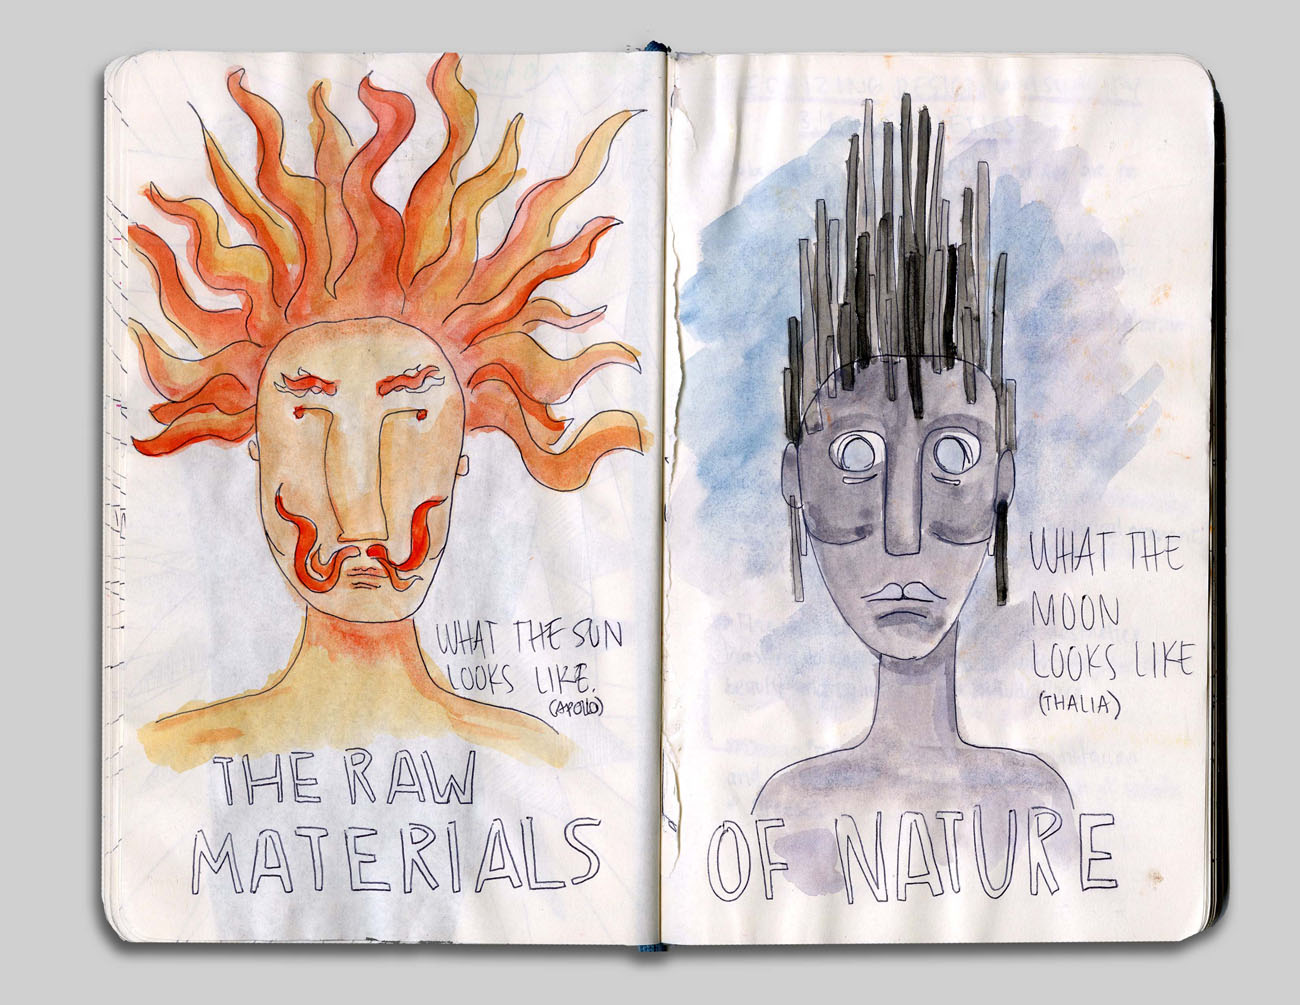 WHAT THE SUN
LOOKS LIKE.
(APOLLO)
THE RAW
MATERIALS
WHAT THE
MOON
LOOKS LIKE
(THALIA)
OF NATURE